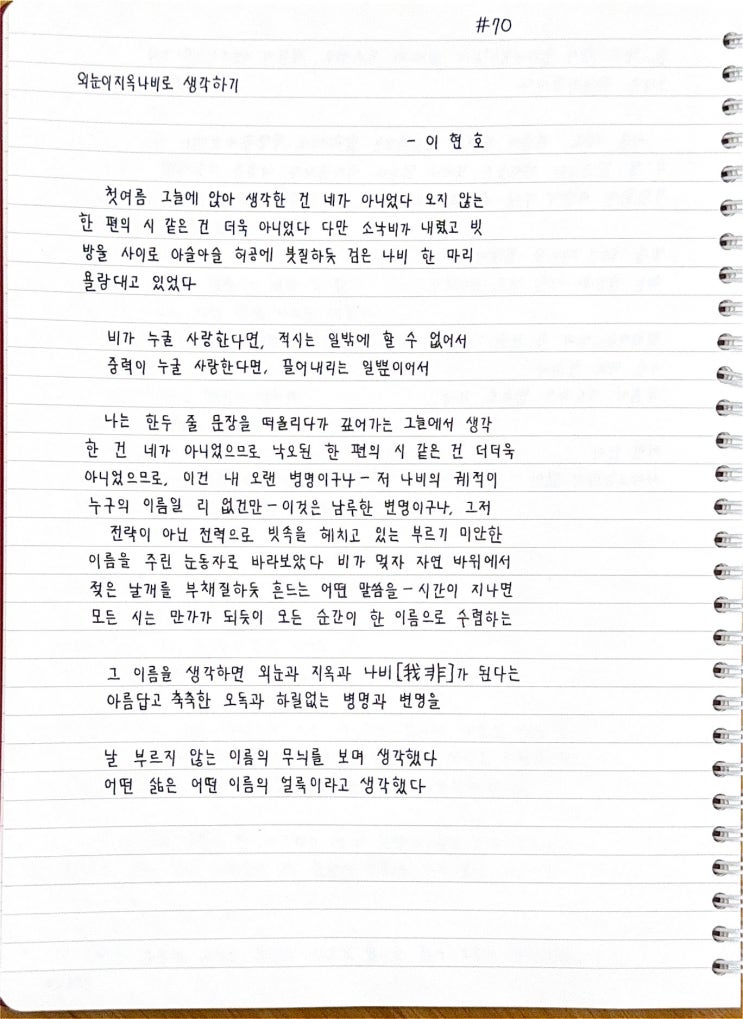 #70
외눈이지옥나비로 생각하기
- 이현호
첫여름 그늘에 앉아 생각한 건 네가 아니었다 오지 않는
한 편의 시 같은 건 더욱 아니었다 다만 소낙비가 내렸고 빗
방울 사이로 아슬아슬 허공에 붓질하듯 검은 나비 한 마리
욜랑대고 있었다
비가 누굴 사랑한다면, 적시는 일밖에 할 수 없어서
중력이 누굴 사랑한다면, 끌어내리는 일뿐이어서
나는 한두 줄 문장을 떠올리다가 깊어가는 그늘에서 생각
한 건 네가 아니었으므로 낙오된 한 편의 시 같은 건 더더욱
아니었으므로, 이건 내 오랜 병명이구나 - 저 나비의 궤적이
누구의 이름일 리 없건만 - 이것은 남루한 변명이구나, 그저
전략이 아닌 전력으로 빗속을 헤치고 있는 부르기 미안한
이름을 주린 눈동자로 바라보았다 비가 멎자 자연 바위에서
젖은 날개를 부채질하듯 흔드는 어떤 말씀을 - 시간이 지나면
모든 시는 만가가 되듯이 모든 순간이 한 이름으로 수렴하는
그 이름을 생각하면 외눈과 지옥과 나비[我非]가 된다는
아름답고 축축한 오독과 하릴없는 병명과 변명을
날 부르지 않는 이름의 무늬를 보며 생각했다
어떤 삶은 어떤 이름의 얼룩이라고 생각했다